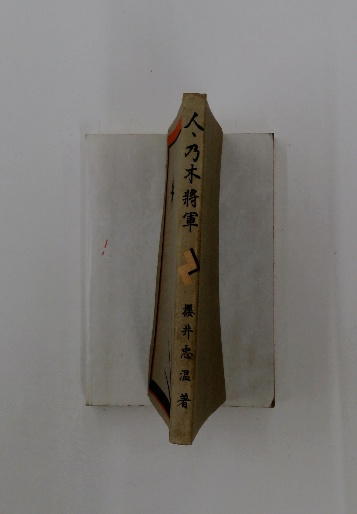 人、乃木將軍
櫻井忠温著